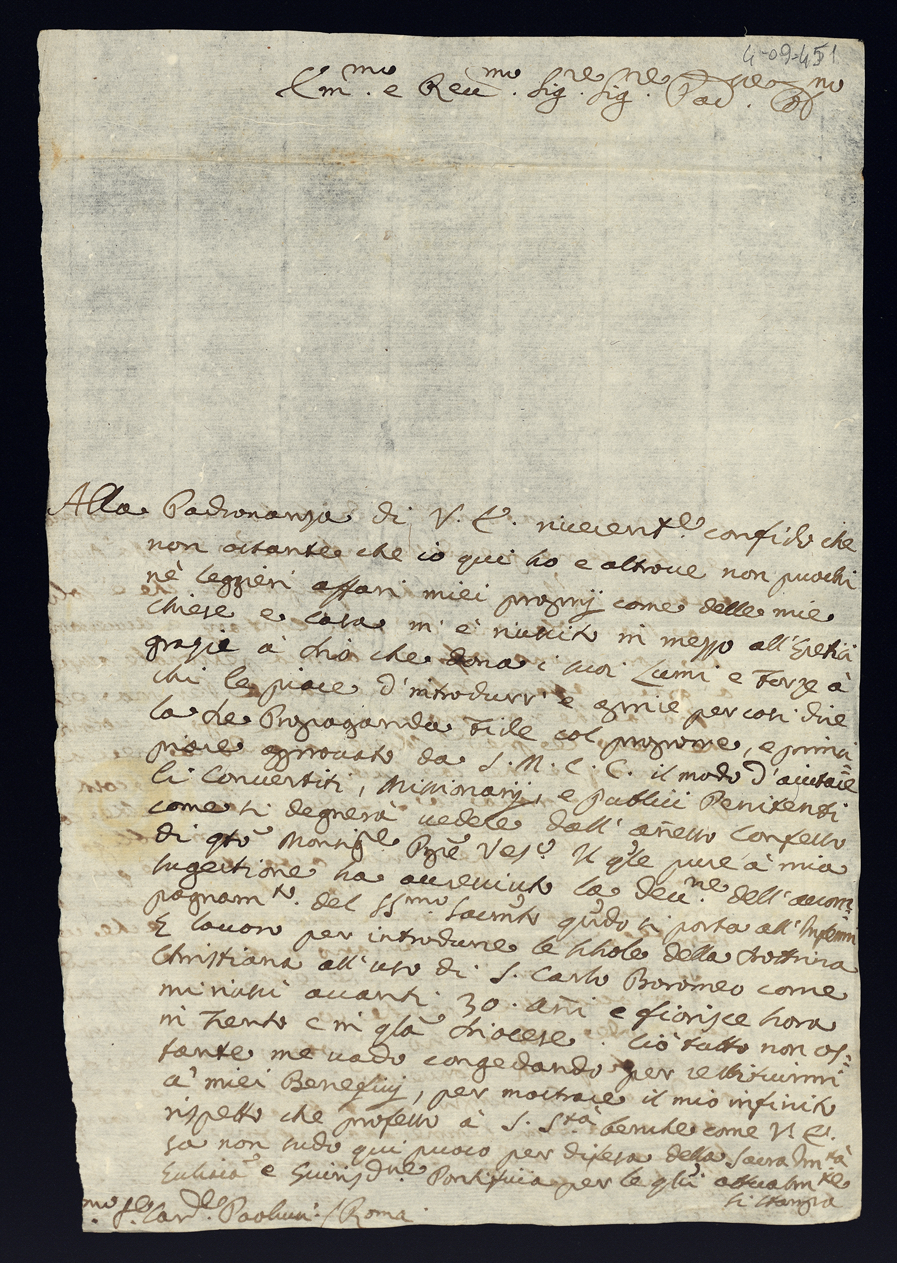 4-09-451
Em.mo e Reu.mo Sig.re Sig.re Pad.ne
Alla Padronanza di V. E. riuerent.e confido che
non ostante che io qui ho e altroue non puochi
nè leggieri affari miei proprij come delle mie
Chiese e Casa m'è riuscito in mezzo all'Eretici
grazie à Dio che dona i suoi Lumi e Forze à
chi le piace d'introdurr' e aprire per così dire
la de Propaganda Fide col proporre, e
approuato da S. M. C. C. il modo d'aiutare
li Conuertiti, Missionarij, e Publici Penitenti
come si degnerà uedere dall' añesso
di qsto Vesc.o Il qle pure à mia
sugestione ha accresciuto la deu.ne dell'accom=
pagnam.to del SS.mo Sacram̃to qdo si porta all'Infermi
E lauoro per introdurre le schole della Dottrina
Christiana all'uso di S. Carlo Boromeo come
mi riuscì auanti 30. añi e fiorisce hora
in Trento e in qsta Diocese. Ciò tutto non os=
tante me uado congedando per restituirmi
à miei Beneficij, per mostrare il mio infinito
rispetto che professo à S. S.tà benche come V. E.
sa non sudo qui puoco per difesa della Sacra Im.tà
e Giurisd.ne Pontificia per le qli attualm.te
si stampa
S.r Card.le Paolucci / Roma.